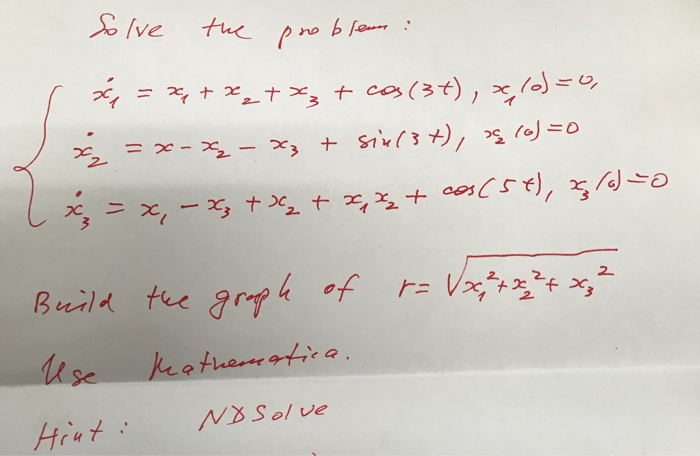 Solve the problem:
ẋ₁ = x₁ + x₂ + x₃ + cos(3t), x₁(0)=0,
ẋ₂ = x - x₂ - x₃ + sin(3t), x₂(0)=0
ẋ₃ = x₁ - x₃ + x₂ + x₁x₂ + cos(5t), x₃(0)=0
Build the graph of r= √x₁²+x₂²+x₃²
Use Mathematica.
Hint: NDSolve